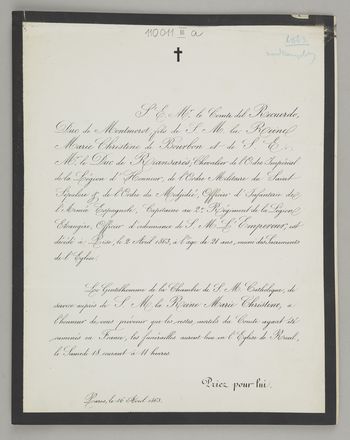 11001 III a
1863
S. E. Mr. le Comte del Recuerdo,
Duc de Montmorot, fils de S. M. la Reine
Marie Christine de Bourbon et de S. E.
Mr. le Duc de Rianzares, Chevalier de l'Ordre Impérial
de la Légion d'Honneur, de l'Ordre Militaire du Saint
Sépulcre & de l'Ordre du Medjidié, Officier d'Infanterie de
l'Armée Espagnole, Capitaine au 2e Régiment de la Légion
Etrangère, Officier d'ordonnance de S. M. L'Empereur, est
décédé à Pise, le 2 Avril 1863, à l'âge de 21 ans, muni des Sacrements
de l'Eglise.
Les Gentilhomme de la Chambre de S. M. Catholique, de
service auprès de S. M. la Reine Marie Christine, a
l'honneur de vous prévenir que les restes mortels du Comte ayant été
ramenés en France, les funérailles auront lieu en l'Eglise de Rueil,
le Samedi 18 courant à 11 heures.
Priez pour lui.
Paris, le 16 Avril 1863.